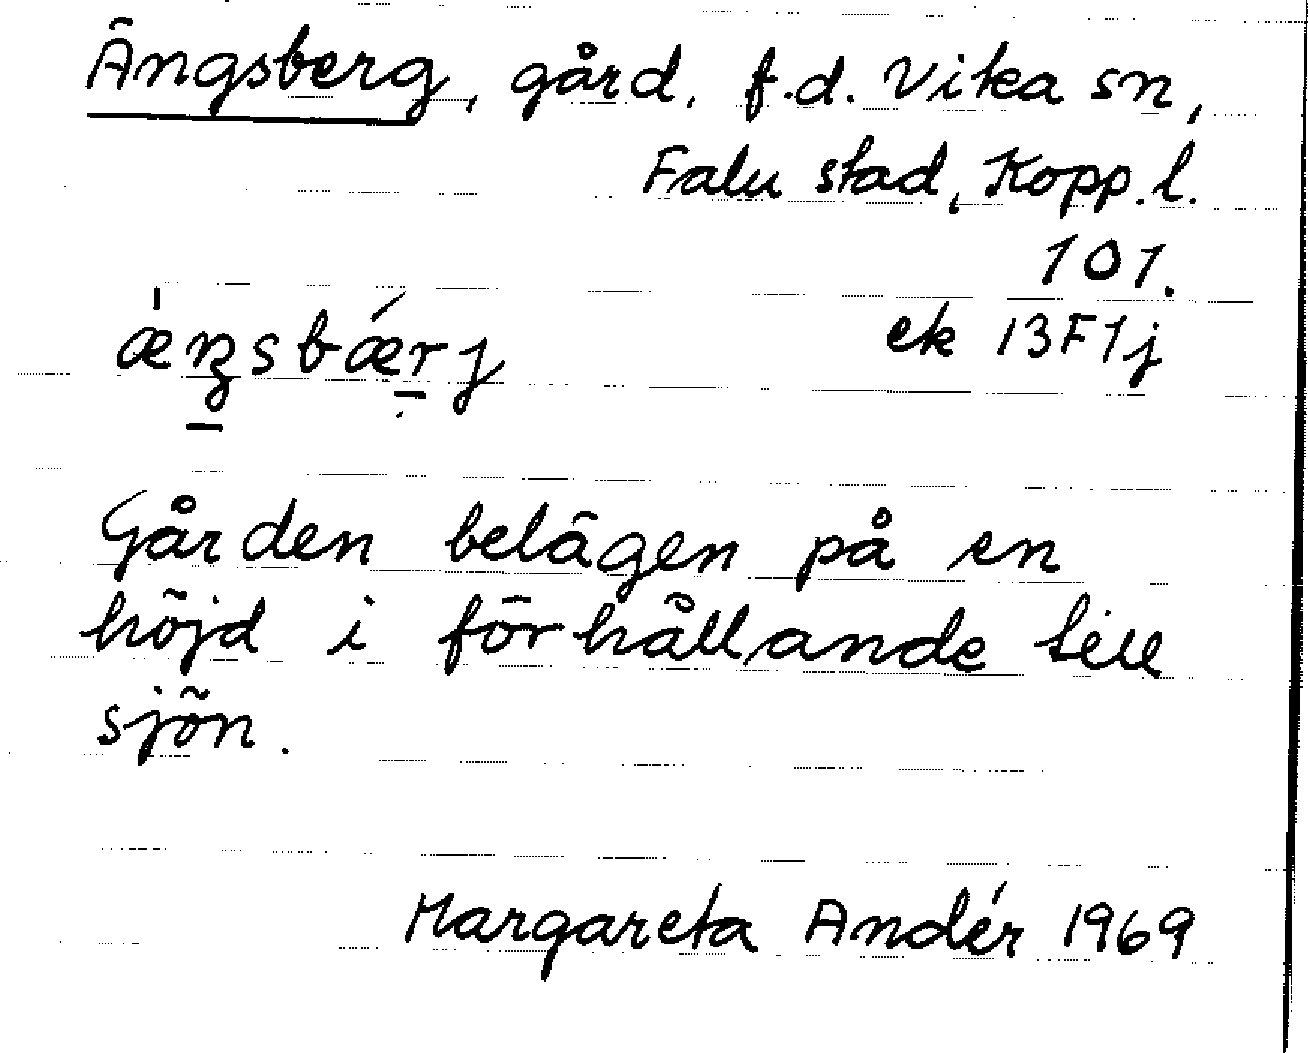 Ängsberg, gård, f.d. Vika sn,
Falu stad, Kopp. l.
101.
ek 13F1j
ǽŋsbǽrj
Gården belägen på en
höjd i förhållande till
sjön.
Margareta Andér 1969